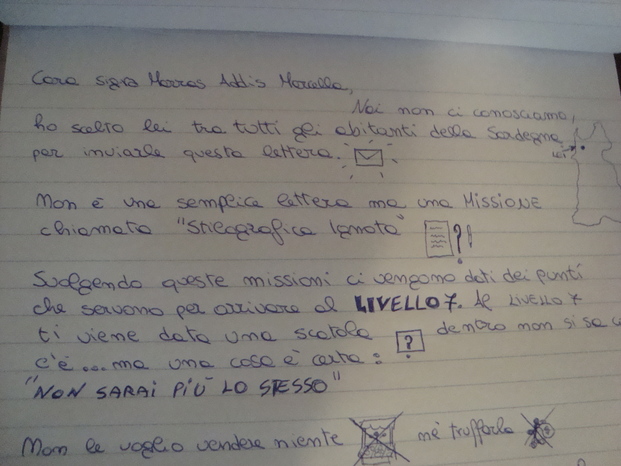 Cara sig.ra Marras Addis Marcella,
Noi non ci conosciamo,
ho scelto lei tra tutti gli abitanti della Sardegna
per inviarle questa lettera.
lei
Non è una semplice lettera ma una MISSIONE
chiamata "Stilografica Ignota"
?!
Svolgendo queste missioni ci vengono dati dei punti
che servono per arrivare al LIVELLO 7. Al LIVELLO 7
ti viene data una scatola ? dentro non si sa
c'è... ma una cosa è certa:
"NON SARAI PIÙ LO STESSO"
Non le voglio vendere niente né truffarla